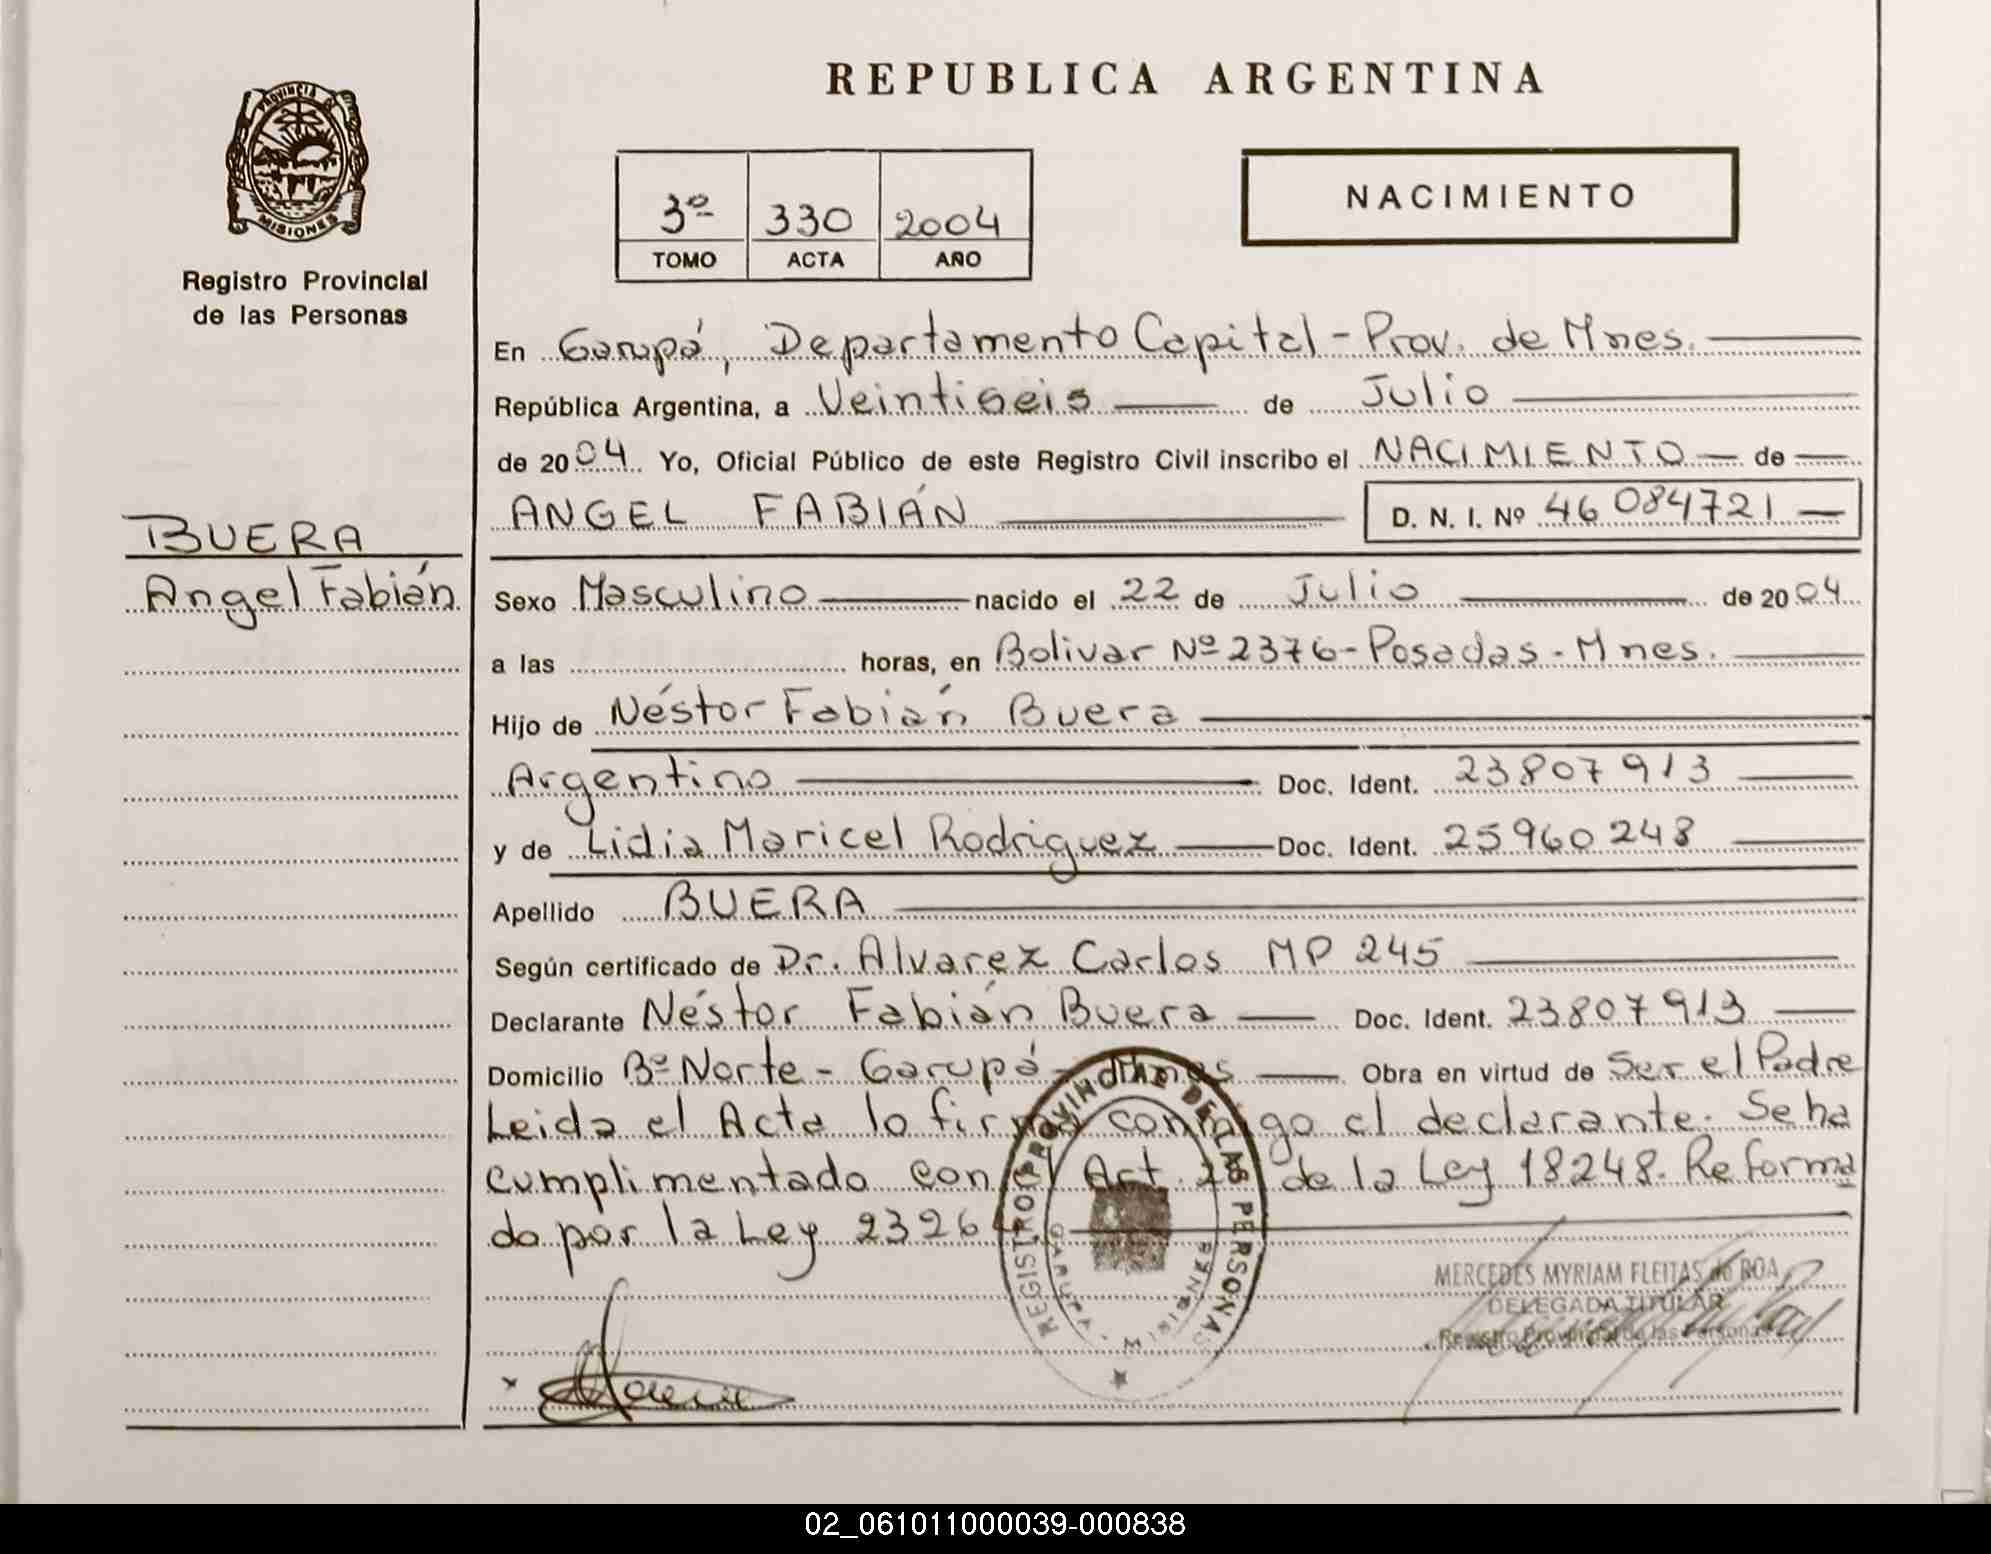 REPUBLICA ARGENTINA
PROVINCIA DE
MISIONES
Registro Provincial
de las Personas
3º 330 2004
TOMO ACTA AÑO
NACIMIENTO
En Garupá, Departamento Capital - Prov. de Mnes.
República Argentina, a Veintiseis de Julio
de 2004. Yo, Oficial Público de este Registro Civil inscribo el NACIMIENTO de
ANGEL FABIÁN D. N. I. Nº 46 084721
BUERA
Angel Fabián
Sexo Masculino nacido el 22 de Julio de 2004
a las horas, en Bolivar Nº 2376 - Posadas - Mnes.
Hijo de Néstor Fabián Buera
Argentino Doc. Ident. 23807913
y de Lidia Maricel Rodriguez Doc. Ident. 25960248
Apellido BUERA
Según certificado de Dr. Alvarez Carlos MP 245
Declarante Néstor Fabián Buera Doc. Ident. 23807913
Domicilio Bº Norte - Garupá - Mnes Obra en virtud de Ser el Padre
Leida el Acta lo firma conmigo el declarante. Se ha
cumplimentado con el Art. de la Ley 18248. Reforma
do por la Ley 2326
REGISTRO PROVINCIAL DE LAS PERSONAS
GARUPA - MISIONES
MERCEDES MYRIAM FLEITAS de ROA
DELEGADA TITULAR
Registro Provincial de las Personas
02_061011000039-000838